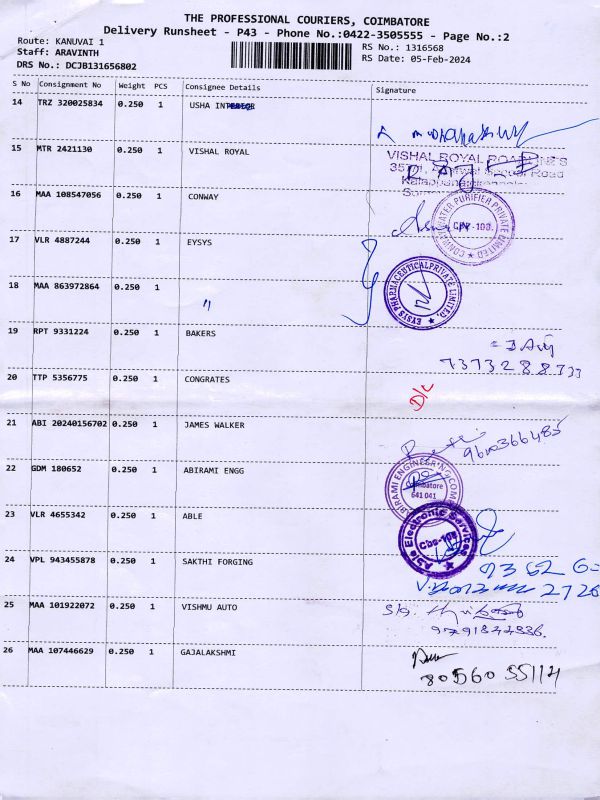 THE PROFESSIONAL COURIERS, COIMBATORE
Delivery Runsheet - P43 - Phone No.:0422-3505555 - Page No.:2
Route: KANUVAI 1
Staff: ARAVINTH
DRS No.: DCJB131656802
RS No.: 1316568
RS Date: 05-Feb-2024
S No Consignment No Weight PCS Consignee Details Signature
14 TRZ 320025834 0.250 1 USHA
15 MTR 2421130 0.250 1 VISHAL ROYAL
VISHAL ROYAL
16 MAA 108547056 0.250 1 CONWAY
WATER PURIFIER PRIVATE LIMITED
17 VLR 4887244 0.250 1 EYSYS
EYSYS PHARMACEUTICAL PRIVATE LIMITED
18 MAA 863972864 0.250 1 "
19 RPT 9331224 0.250 1 BAKERS
20 TTP 5356775 0.250 1 CONGRATES D/C
21 ABI 20240156702 0.250 1 JAMES WALKER
22 GDM 180652 0.250 1 ABIRAMI ENGG
ABIRAMI ENGINEERING
641 041
23 VLR 4655342 0.250 1 ABLE
Able Electronic Services
24 VPL 943455878 0.250 1 SAKTHI FORGING
25 MAA 101922072 0.250 1 VISHMU AUTO
26 MAA 107446629 0.250 1 GAJALAKSHMI
80560 55114